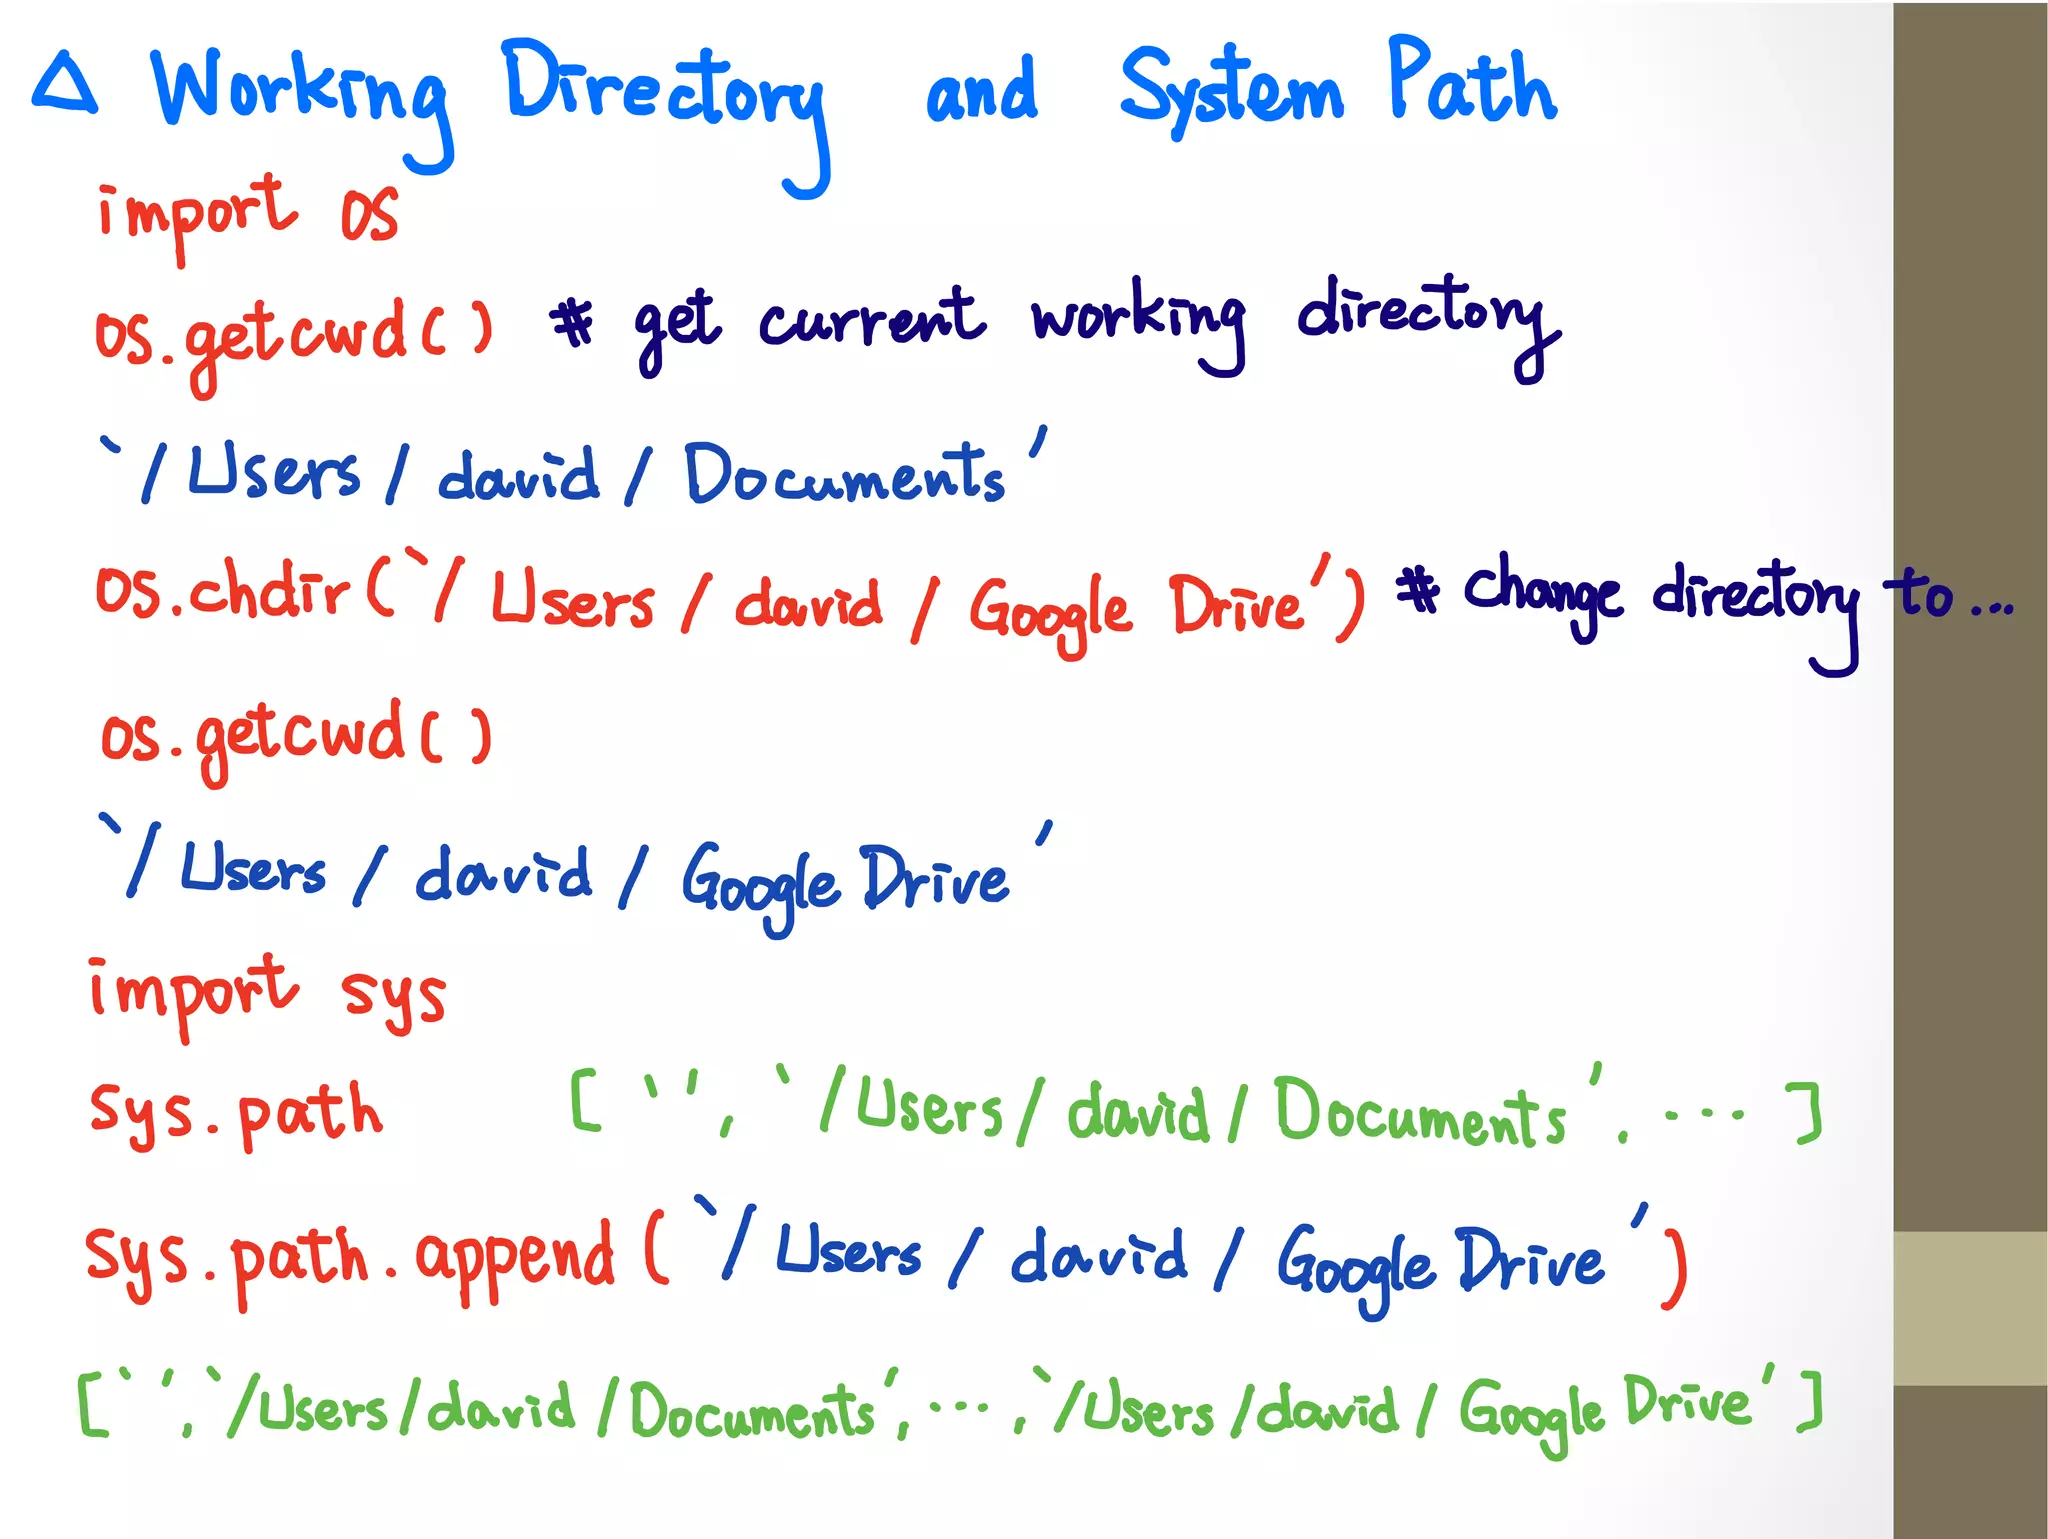 △ Working Directory and System Path
import os
os.getcwd() # get current working directory
`/Users/david/Documents'
os.chdir(`/Users/david/Google Drive') # change directory to...
os.getcwd()
`/Users/david/Google Drive'
import sys
sys.path [`', `/Users/david/Documents', ... ]
sys.path.append(`/Users/david/Google Drive')
[`', `/Users/david/Documents', ..., `/Users/david/Google Drive']